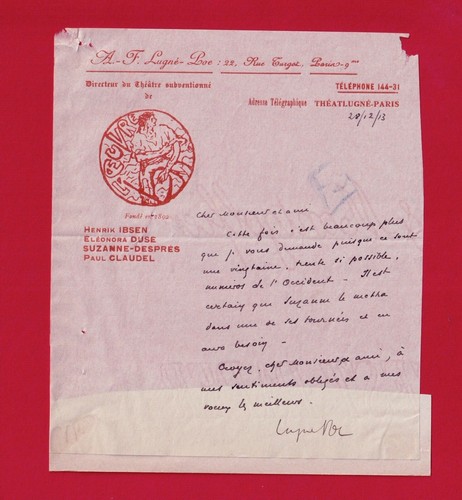 A-F. Lugné-Poe : 22, Rue Turgot_ Paris-9me
Directeur du Théâtre subventionné
de
L'ŒUVRE
TÉLÉPHONE 144-31
Adresse Télégraphique THÉATLUGNÉ-PARIS
28/12/13
Fondé en 1892
HENRIK IBSEN
ELÉONORA DUSE
SUZANNE-DESPRÈS
PAUL CLAUDEL
Cher Monsieur et ami
Cette fois c'est beaucoup plus
que je vous demande puisque ce sont
une vingtaine, trente si possible,
numéros de l'Occident - Il est
certain que Suzanne le mettra
dans une de ses tournées et en
aura besoin -
Croyez, cher Monsieur et ami, à
mes sentiments obligés et à mes
voeux les meilleurs.
Lugné Poe